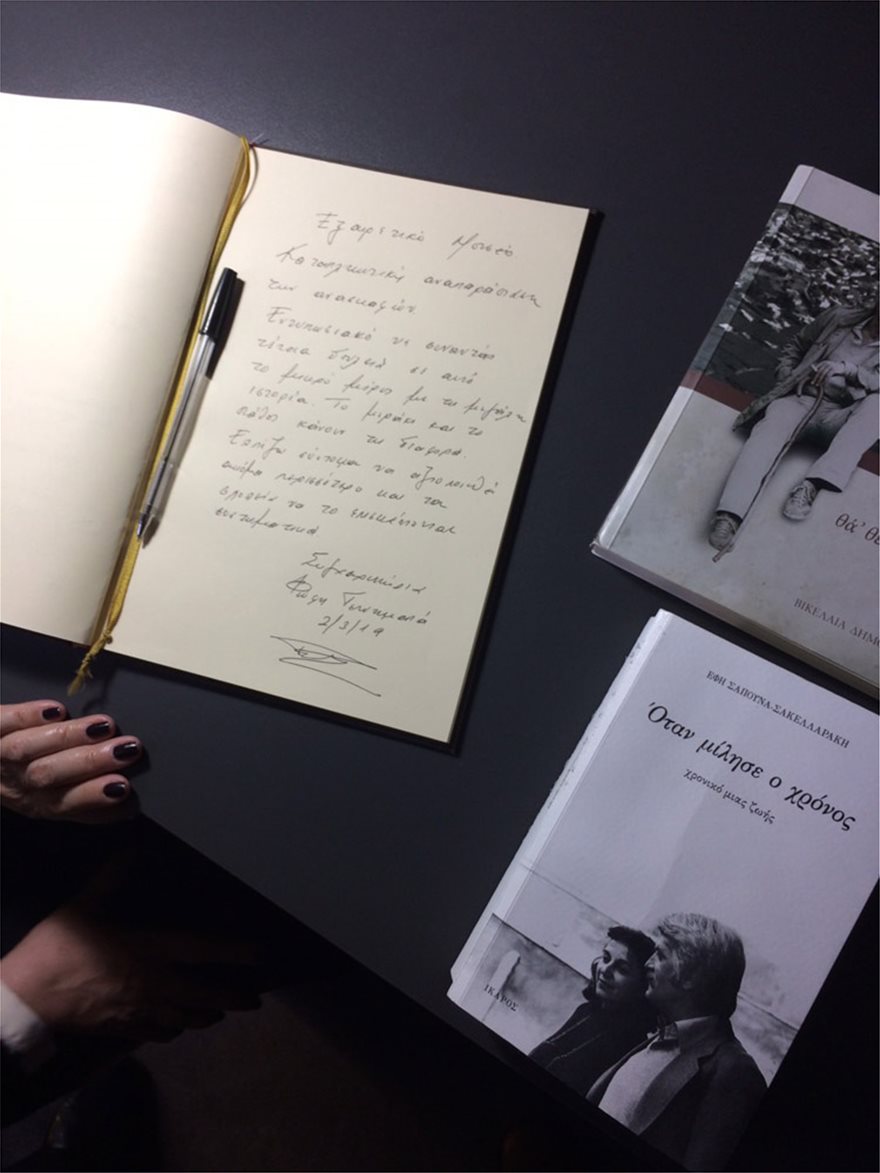 Εξαιρετικό Μουσείο
Καταπληκτική αναπαράσταση
των ανασκαφών.
Εντυπωσιακό να συναντάς
τέτοια δουλειά σε αυτό
το μικρό μέρος με τη μεγάλη
ιστορία. Το μεράκι και το
πάθος κάνουν τη διαφορά.
Ελπίζω σύντομα να αξιοποιηθεί
ακόμα περισσότερο και τα
σχολεία να το επισκέπτονται
συστηματικά
Συγχαρητήρια
Φώφη
2/3/19
θά' θε
ΒΙΚΕΛΑΙΑ ΔΗΜΟ
ΕΦΗ ΣΑΠΟΥΝΑ-ΣΑΚΕΛΛΑΡΑΚΗ
Όταν μίλησε ο χρόνος
χρονικό μιας ζωής
ΙΚΑΡΟΣ